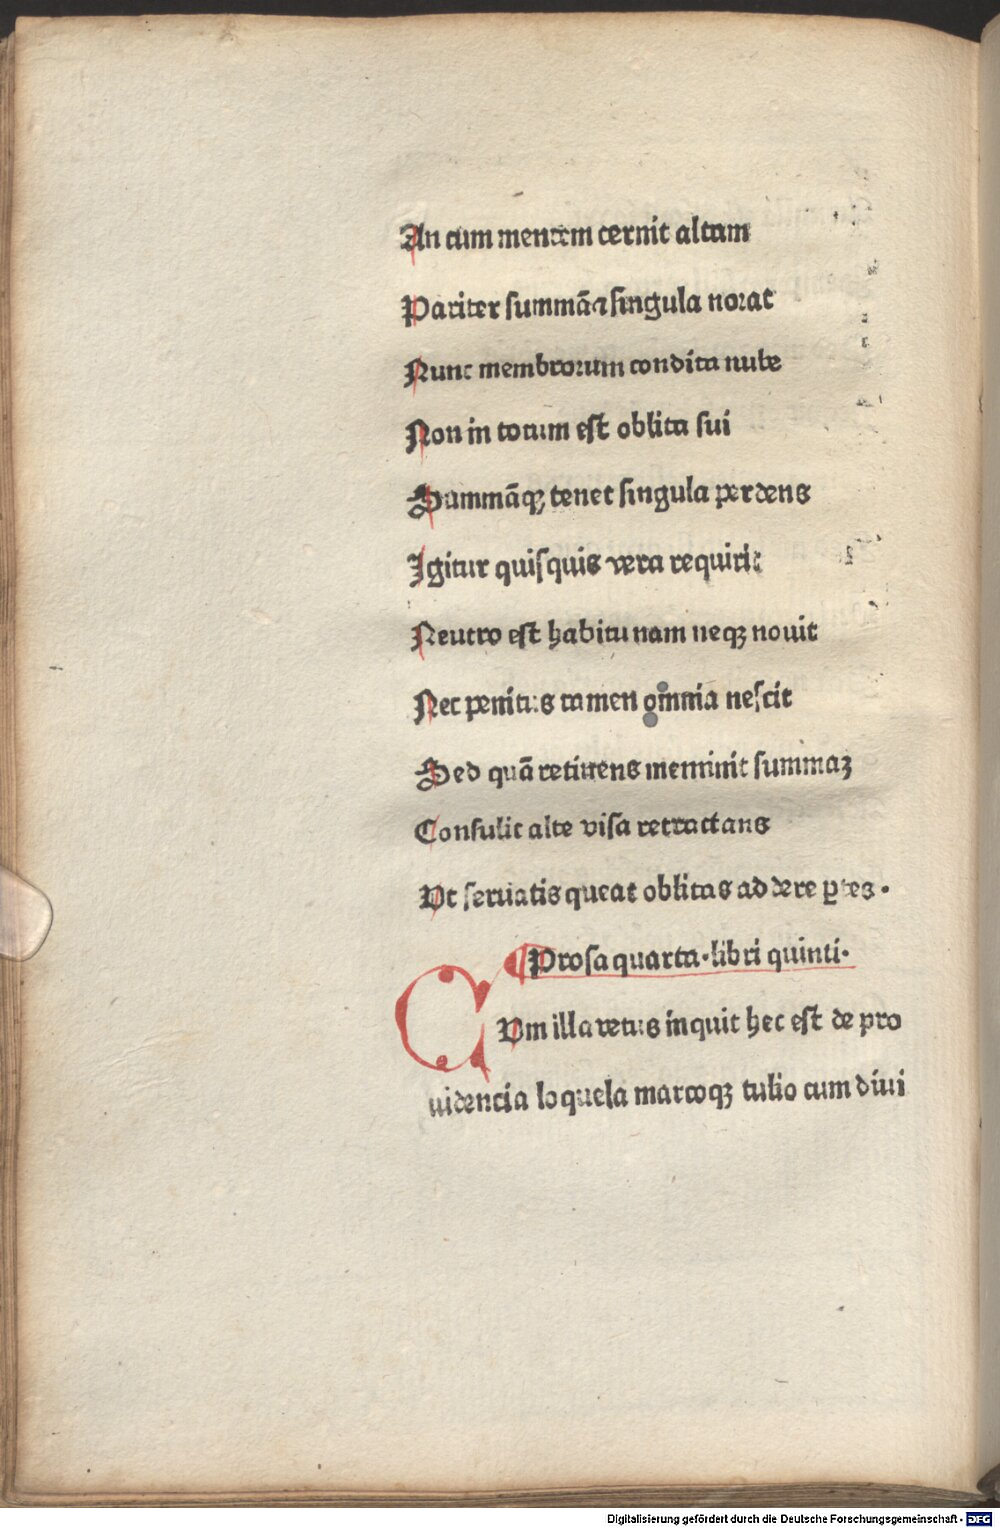 An cum mentem cernit altam
Pariter summā ⁊ singula norat
Nunc membrorum condita nube
Non in totum est oblita sui
Summāqꝫ tenet singula perdens
Igitur quisquis vera requirit
Neutro est habitu nam neqꝫ nouit
Nec penitus tamen omnia nescit
Sed quā retinens meminit summaꝫ
Consulit alte visa retractans
Vt seruatis queat oblitas addere ꝑtes ·
¶ Prosa quarta · libri quinti ·
CVm illa vetus inquit hec est de pro
uidencia loquela marcoqꝫ tulio cum diui
Digitalisierung gefördert durch die Deutsche Forschungsgemeinschaft - DFG